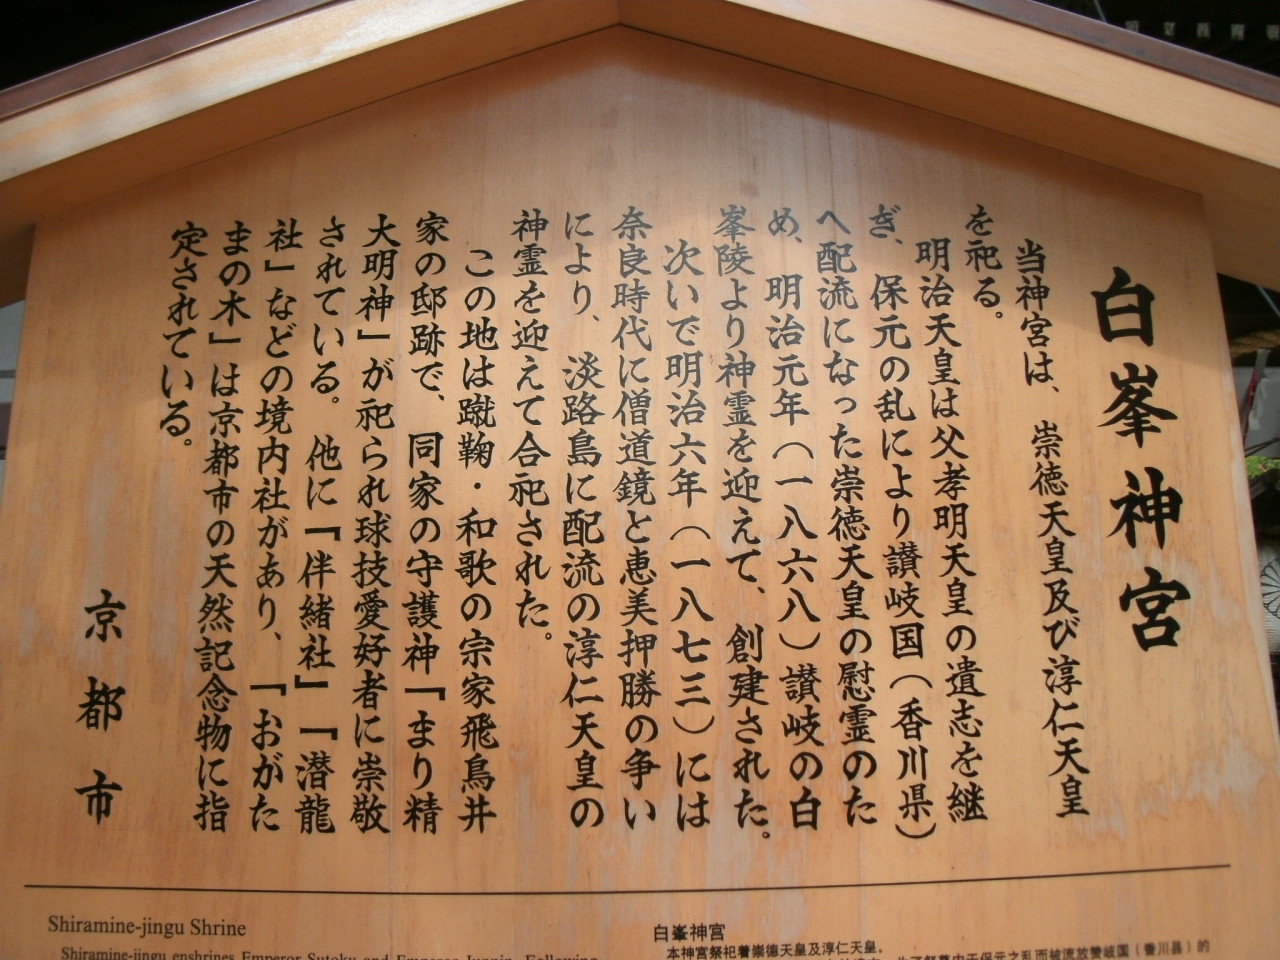 白峯神宮
当神宮は、崇徳天皇及び淳仁天皇
を祀る。
明治天皇は父孝明天皇の遺志を継
ぎ、保元の乱により讃岐国（香川県）
へ配流になった崇徳天皇の慰霊のた
め、明治元年（一八六八）讃岐の白
峯陵より神霊を迎えて、創建された。
次いで明治六年（一八七三）には
奈良時代に僧道鏡と恵美押勝の争い
により、淡路島に配流の淳仁天皇の
神霊を迎えて合祀された。
この地は蹴鞠・和歌の宗家飛鳥井
家の邸跡で、同家の守護神「まり精
大明神」が祀られ球技愛好者に崇敬
されている。他に「伴緒社」「潜龍
社」などの境内社があり、「おがた
まの木」は京都市の天然記念物に指
定されている。
京都市
Shiramine-jingu Shrine
Shiramine-jingu enshrines Emperor Sutoku and Emperor Junnin. Following
白峯神宮
本神宫祭祀着崇德天皇及淳仁天皇。